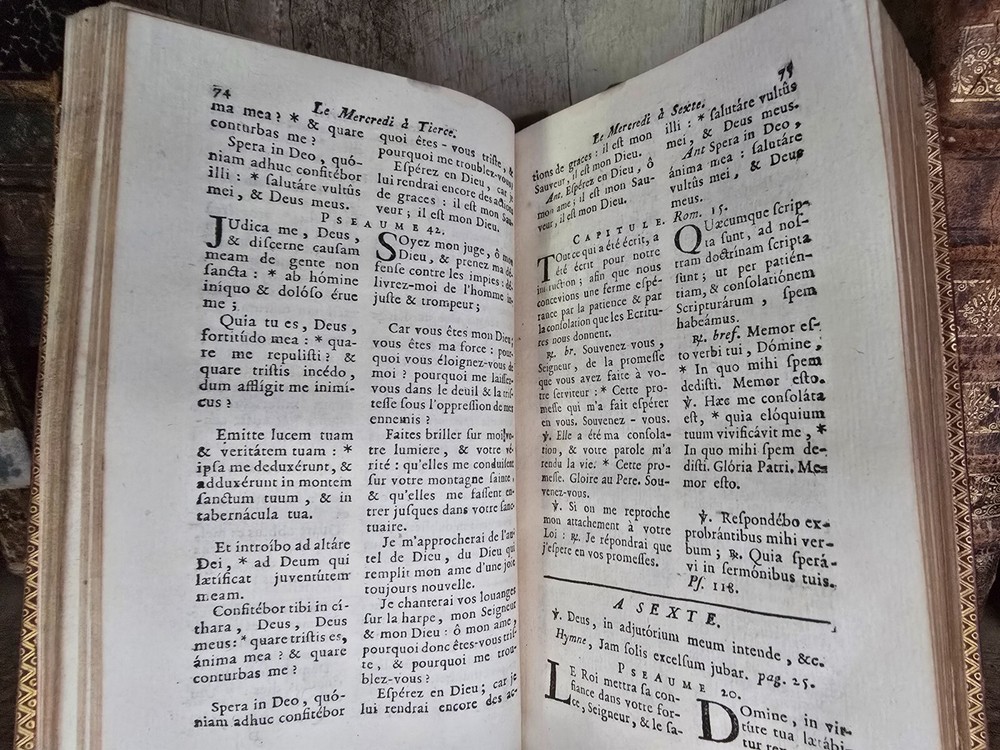 74
Le Mercredi à Tierce.
ma mea? * & quare
conturbas me?
Spera in Deo, quó-
niam adhuc confitébor
illi: * salutáre vultûs
mei, & Deus meus.
quoi êtes-vous triste, &
pourquoi me troublez-vous?
Espérez en Dieu, car je
lui rendrai encore des actions
de graces: il est mon Sau-
veur; il est mon Dieu.
PSEAUME 42.
JUdica me, Deus,
& discerne causam
meam de gente non
sancta: * ab hómine
iníquo & dolóso érue
me;
Quia tu es, Deus,
fortitúdo mea: * qua-
re me repulisti? &
quare tristis incédo,
dum afflígit me inimí-
cus?
Emitte lucem tuam
& veritátem tuam: *
ipsa me deduxérunt, &
adduxérunt in montem
sanctum tuum, & in
tabernácula tua.
Et introíbo ad altáre
Dei, * ad Deum qui
lætíficat juventútem
meam.
Confitébor tibi in cí-
thara, Deus, Deus
meus: * quare tristis es,
ánima mea? & quare
conturbas me?
Spera in Deo, quó-
niam adhuc confitébor
SOyez mon juge, ô mon
Dieu, & prenez ma dé-
fense contre les impies: dé-
livrez-moi de l'homme in-
juste & trompeur;
Car vous êtes mon Dieu;
vous êtes ma force: pour-
quoi vous éloignez-vous de
moi? pourquoi me laissez-
vous dans le deuil & la tris-
tesse sous l'oppression de mes
ennemis?
Faites briller sur moi votre
tre lumiere, & votre vé-
rité: qu'elles me conduisent
sur votre montagne sainte,
& qu'elles me fassent en-
trer jusques dans votre sanc-
tuaire.
Je m'approcherai de l'au-
tel de Dieu, du Dieu qui
remplit mon ame d'une joie
toujours nouvelle.
Je chanterai vos louanges
sur la harpe, mon Seigneur
& mon Dieu: ô mon ame,
pourquoi donc êtes-vous tris-
te, & pourquoi me trou-
blez-vous?
Espérez en Dieu; car je
lui rendrai encore des ac-
Le Mercredi à Sexte.
75
tions de graces: il est mon
Sauveur, il est mon Dieu.
Ant. Espérez en Dieu, ô
mon ame; il est mon Sau-
veur, il est mon Dieu.
CAPITULE.
TOut ce qui a été écrit, a
été écrit pour notre
instruction; afin que nous
concevions une ferme espé-
rance par la patience & par
la consolation que les Ecritu-
res nous donnent.
℟. br. Souvenez vous,
Seigneur, de la promesse
que vous avez faite à vo-
tre serviteur: * Cette pro-
messe qui m'a fait espérer
en vous. Souvenez-vous.
℣. Elle a été ma consola-
tion, & votre parole m'a
rendu la vie. * Cette pro-
messe. Gloire au Pere. Sou-
venez-vous.
℣. Si on me reproche
mon attachement à votre
Loi: ℟. Je répondrai que
j'espere en vos promesses.
illi: * salutáre vultûs
mei, & Deus meus.
Ant Spera in Deo,
ánima mea: salutáre
vultûs mei, & Deus
meus.
Rom. 15.
QUæcumque scrip-
ta sunt, ad nos-
tram doctrínam scripta
sunt; ut per patién-
tiam, & consolatiónem
Scripturárum, spem
habeámus.
℟. bref. Memor es-
to verbi tui, Dómine,
* In quo mihi spem
dedisti. Memor esto.
℣. Hæc me consoláta
est, * quia elóquium
tuum vivificávit me, *
In quo mihi spem de-
disti. Glória Patri. Me-
mor esto.
℣. Respondébo ex-
probrántibus mihi ver-
bum; ℟. Quia sperá-
vi in sermónibus tuis.
Ps. 118.
A SEXTE.
℣. Deus, in adjutórium meum intende, &c.
Hymne, Jam solis excelsum jubar. pag. 25.
PSEAUME 20.
LE Roi mettra sa con-
fiance dans votre for-
ce, Seigneur, & le sa-
DOmine, in vir-
túte tua lætábi-
tur rex